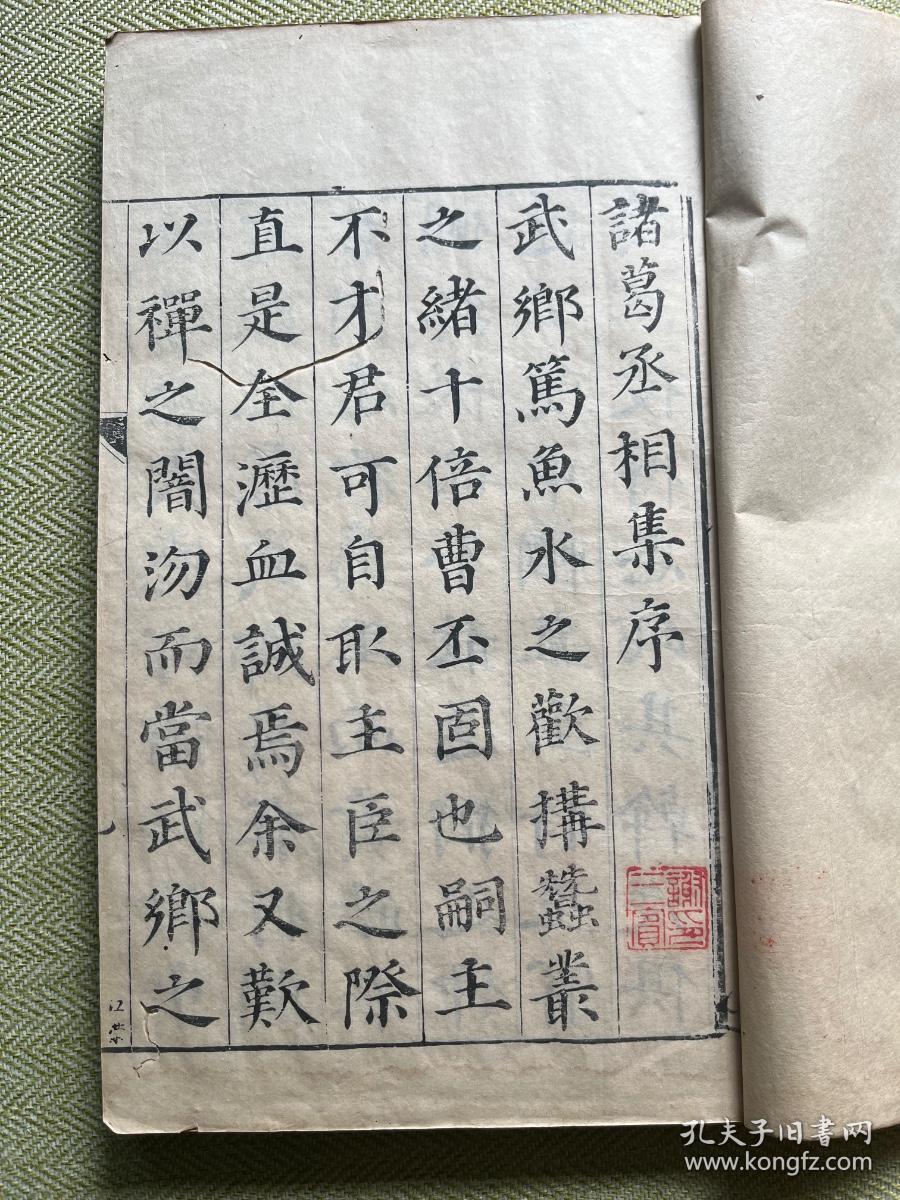 諸葛丞相集序
武鄉篤魚水之歡搆蠶叢
之緒十倍曹丕固也嗣主
不才君可自取主臣之際
直是全瀝血誠焉余又歎
以禪之闇沕而當武鄉之
孔夫子旧书网
www.kongfz.com